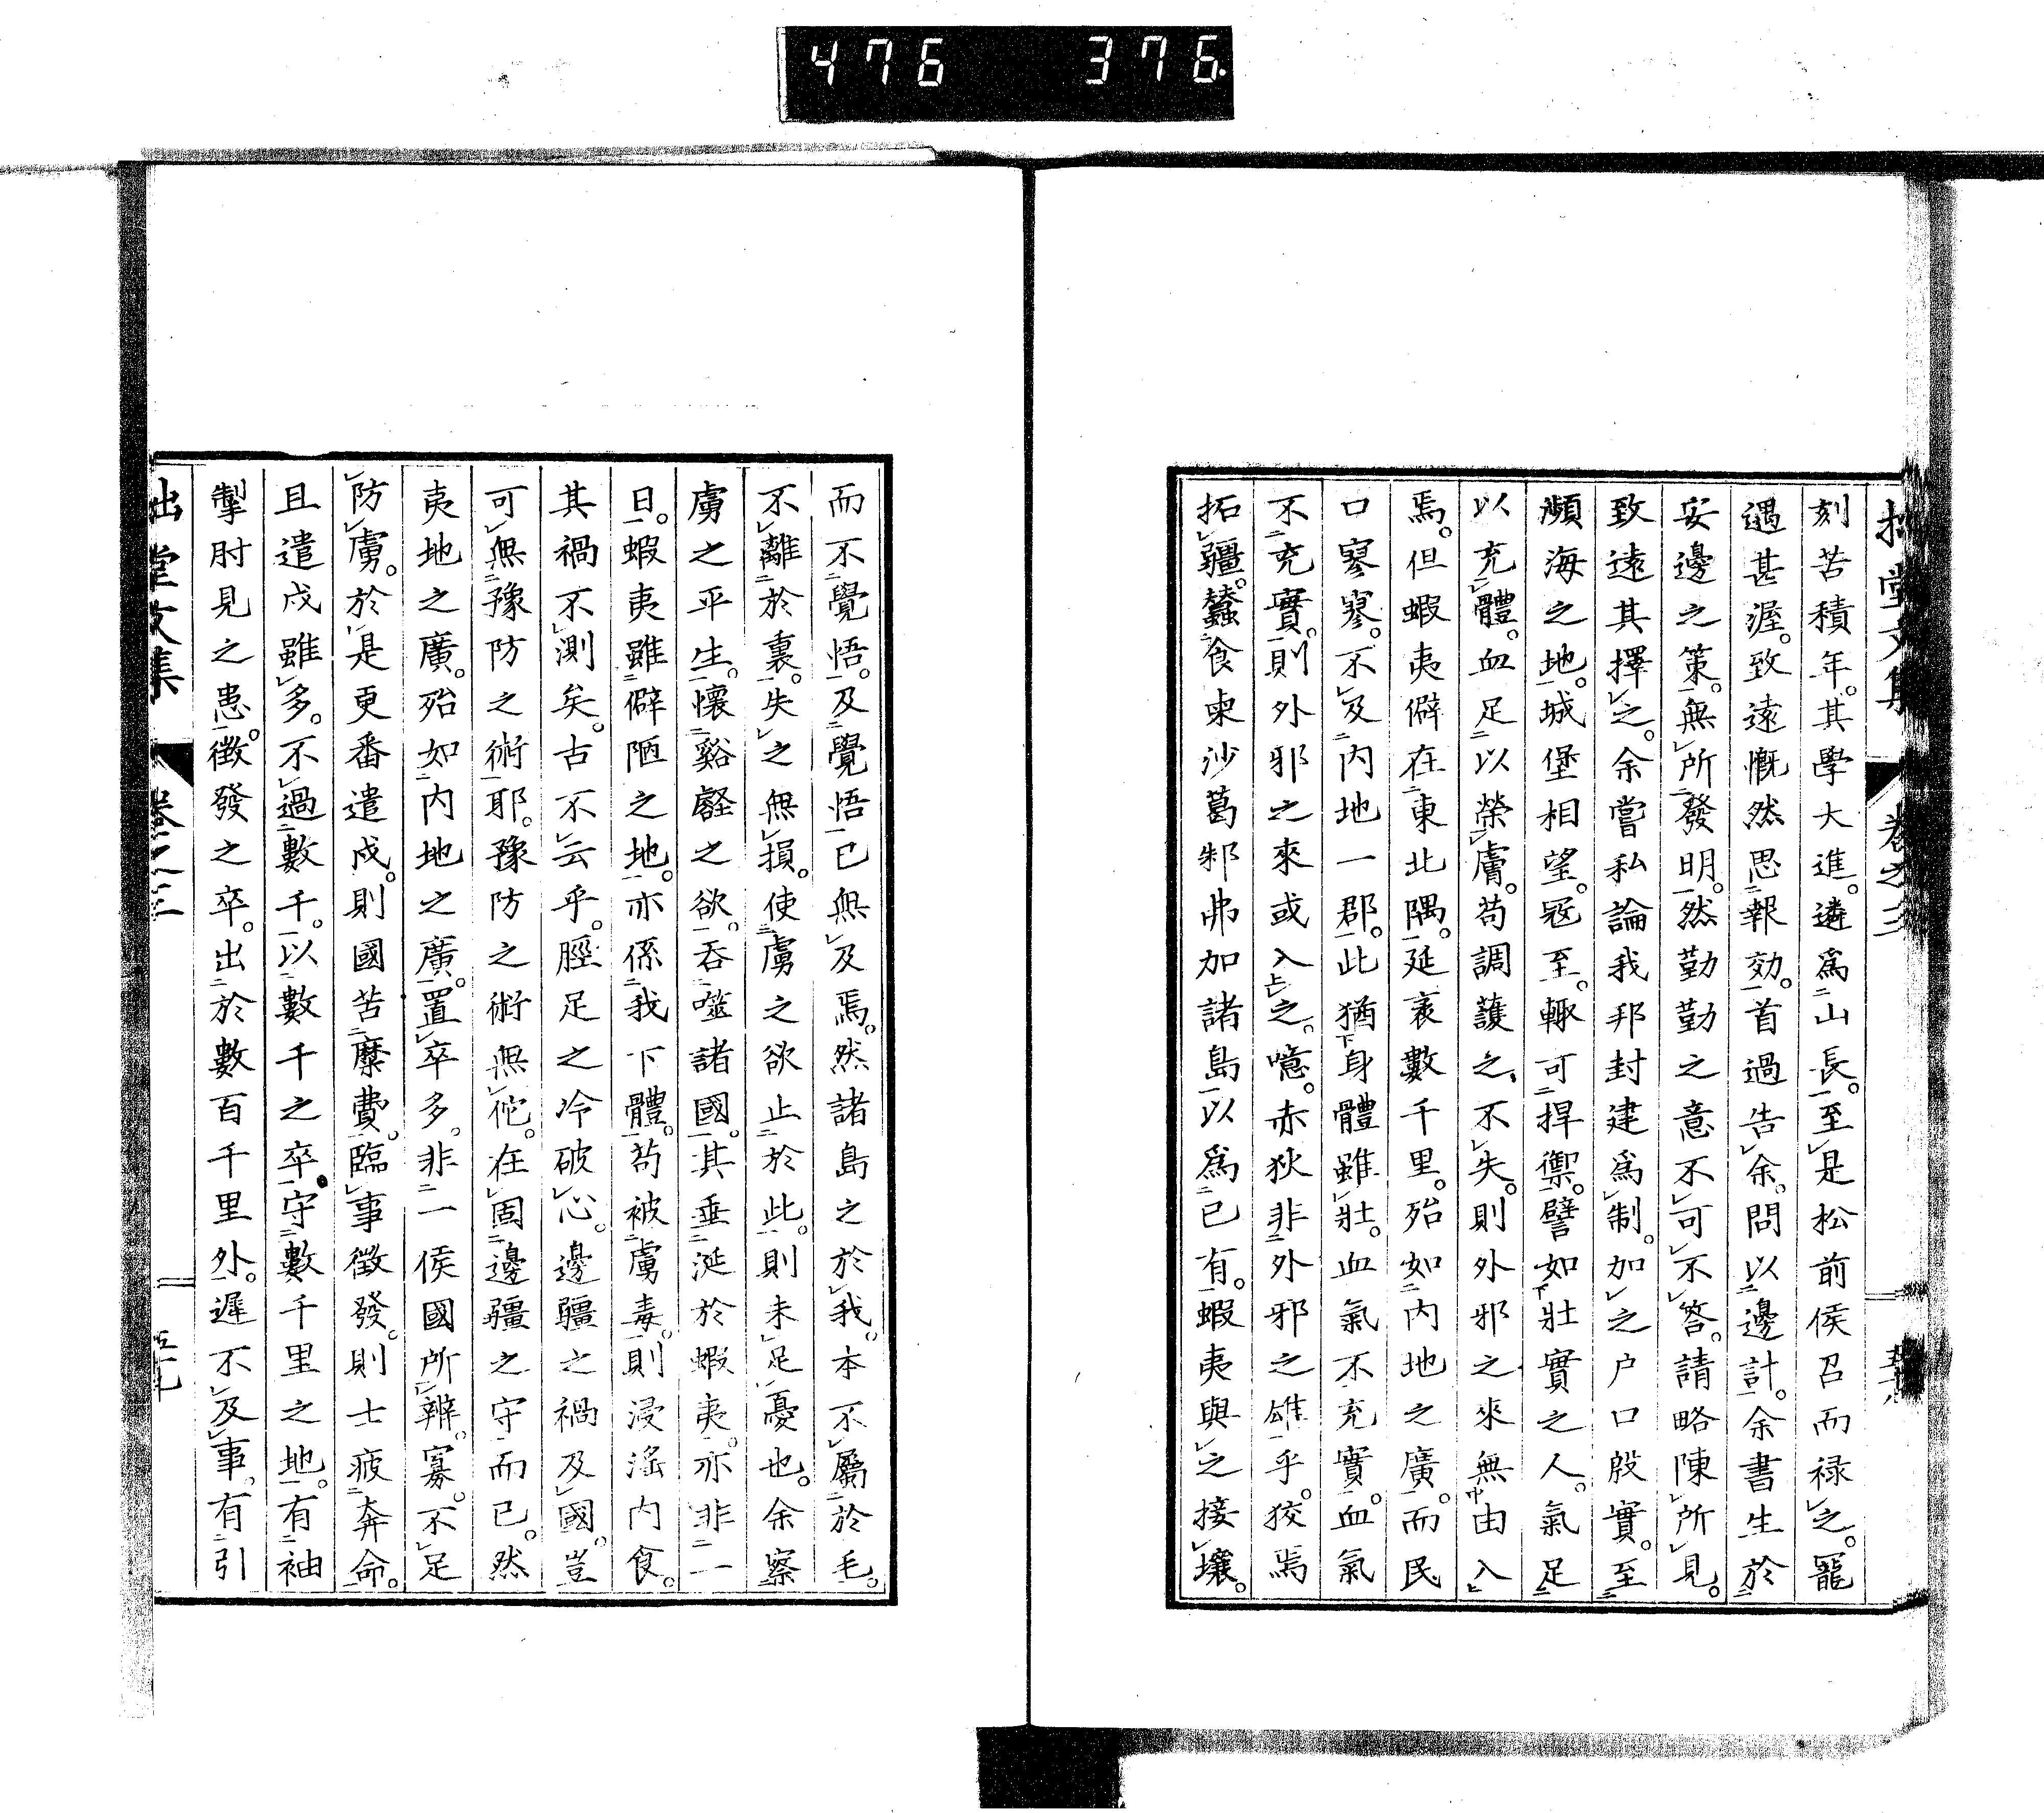 476 376
拙堂文集 卷之三
刻苦積年。其學大進。遴爲山長。至是松前侯召而祿之。寵
遇甚渥。致遠慨然思報効。首過告余。問以邊計。余書生於
安邊之策。無所發明。然勤勤之意不可不答。請略陳所見。
致遠其擇之。余嘗私論我邦封建爲制。加之户口殷實。至
瀕海之地。城堡相望。寇至。輙可捍禦。譬如壯實之人。氣足
以充體。血足以榮膚。苟調護之、不失。則外邪之來無由入
焉。但蝦夷僻在東北隅。延袤數千里。殆如内地之廣。而民
口寥寥。不及内地一郡。此猶身體雖壯。血氣不充實。血氣
不充實。則外邪之來或入之。噫。赤狄非外邪之雄乎。狡焉
拓疆。蠶食東沙葛郍弗加諸島以爲已有。蝦夷與之接壤。
而不覺悟。及覺悟已無及焉。然諸島之於我。本不屬於毛。
不離於裏。失之無損。使虜之欲止於此。則未足憂也。余察
虜之平生。懷谿壑之欲。吞噬諸國。其垂涎於蝦夷。亦非一
日。蝦夷雖僻陋之地。亦係我下體。苟被虜毒。則浸滛内食。
其禍不測矣。古不云乎。脛足之冷破心。邊疆之禍及國。豈
可無豫防之術耶。豫防之術無佗。在固邊疆之守而已。然
夷地之廣。殆如内地之廣。置卒多。非一侯國所辨。寡。不足
防虜。於是更番遣戍。則國苦糜費。臨事徵發。則士疲奔命。
且遣戍雖多。不過數千。以數千之卒。守數千里之地。有袖
掣肘見之患。徵發之卒。出於數百千里外。遲不及事。有引
拙堂文集 卷之三